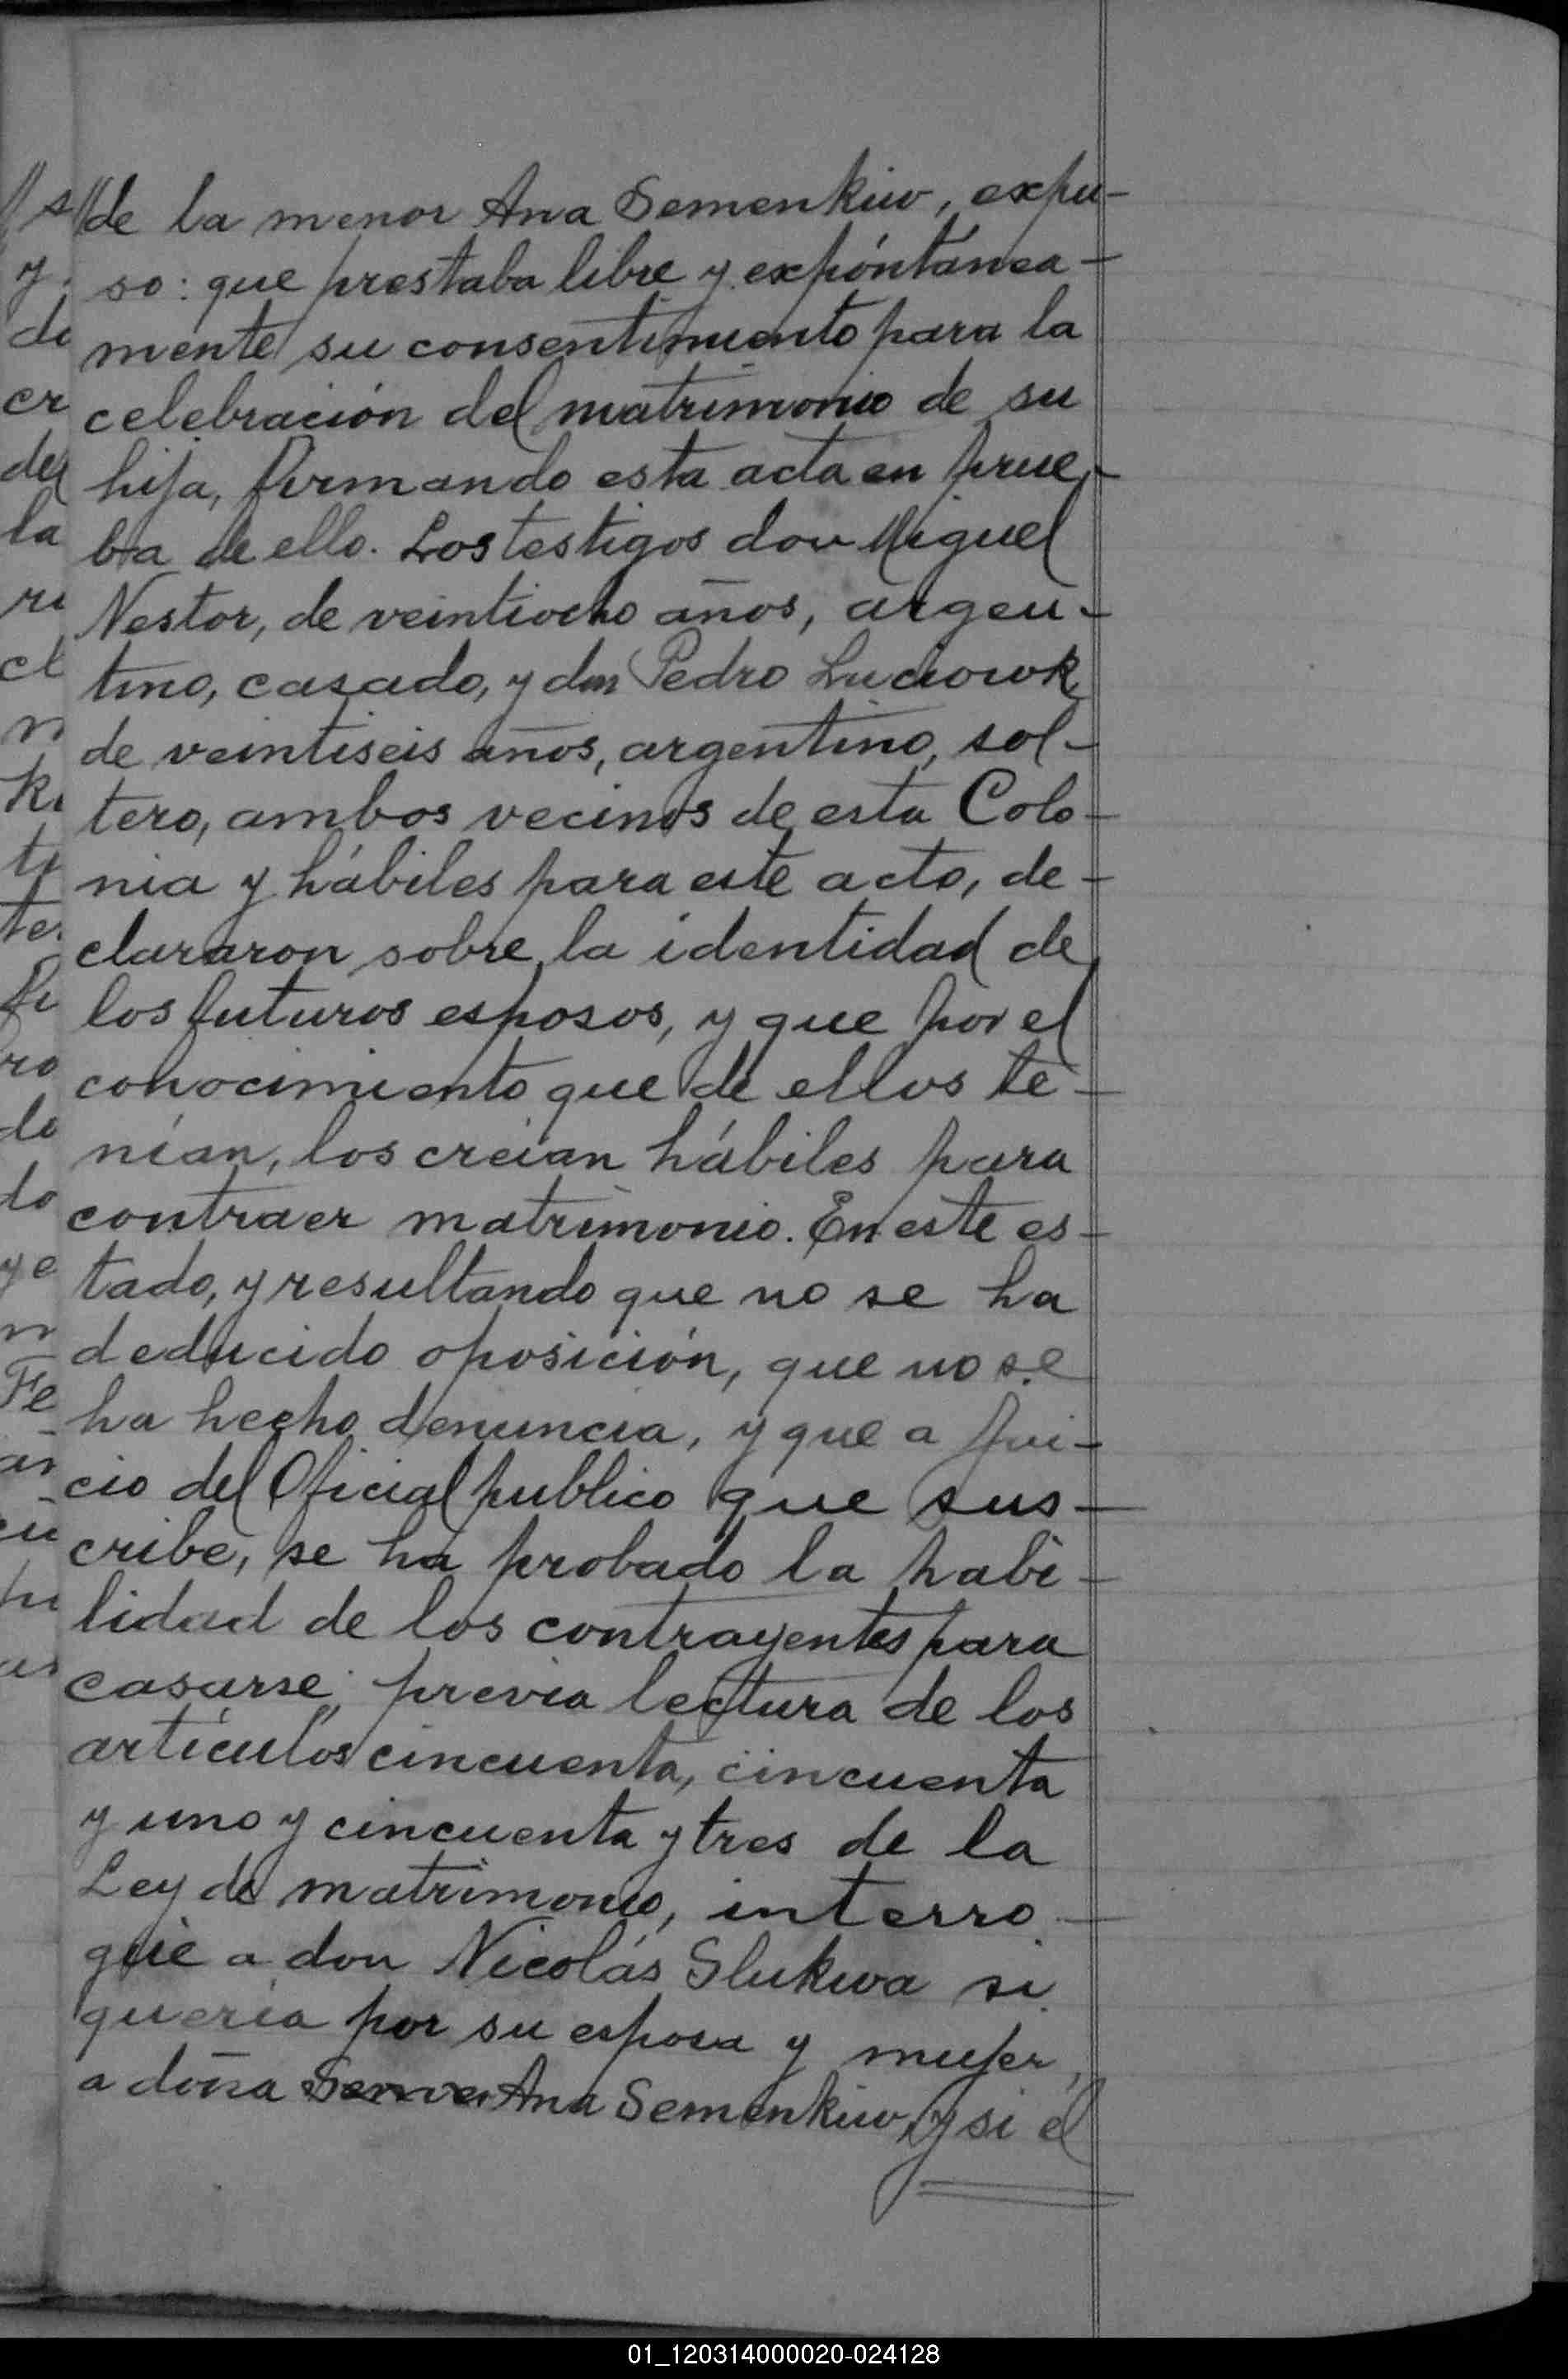 //de la menor Ana Semenkiw, expu-
so: que prestaba libre y expóntánea-
mente su consentimiento para la
celebración del matrimonio de su
hija, firmando esta acta en prue-
ba de ello. Los testigos don Miguel
Nestor, de veintiocho años, argen-
tino, casado, y don Pedro Luciowk
de veintiseis años, argentino, sol-
tero, ambos vecinos de esta Colo-
nia y hábiles para este acto, de-
clararon sobre la identidad de
los futuros esposos, y que por el
conocimiento que de ellos te-
nían, los creian hábiles para
contraer matrimonio. En este es-
tado, y resultando que no se ha
deducido oposición, que no se
ha hecho denuncia, y que a jui-
cio del Oficial publico que sus-
cribe, se ha probado la habi-
lidad de los contrayentes para
casarse; previa lectura de los
artículos cincuenta, cincuenta
y uno y cincuenta y tres de la
Ley de matrimonio, interro-
gúe a don Nicolás Slukwa si
quería por su esposa y mujer,
a doña Ana Semenkiw, y si él
01_120314000020-024128